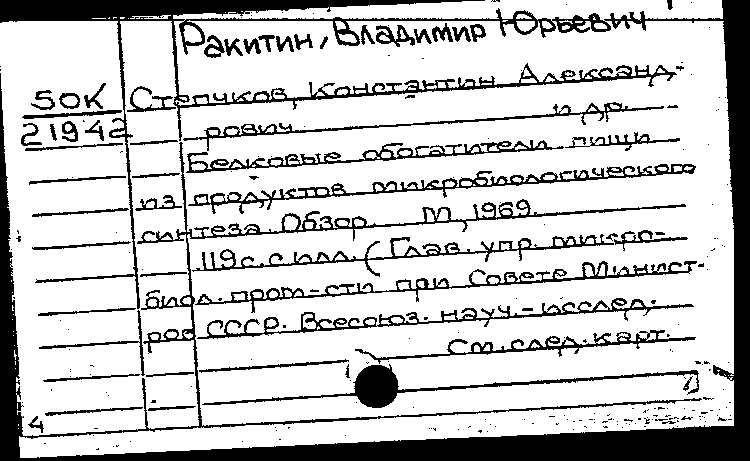 Ракитин, Владимир Юрьевич
50К Степчков, Константин Александ-
21942 рович и др.
Белковые обогатители пищи
из продуктов микробиологического
синтеза. Обзор. М, 1969.
119с. с илл. (Глав. упр. микро-
биол. пром-сти при Совете Минист-
ров СССР. Всесоюз. науч.-исслед.
См. след. карт.
4